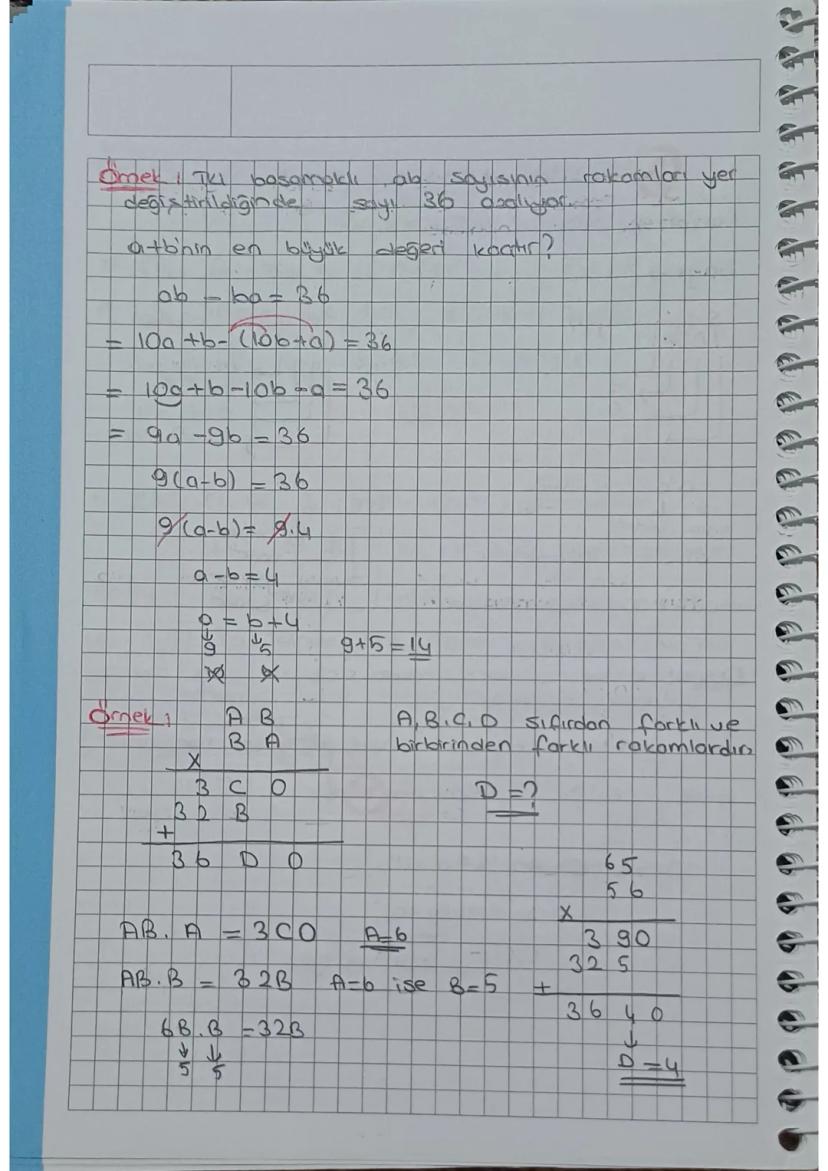 Örnek: İki basamaklı ab sayısının rakamları yer
değiştirildiğinde sayı 36 azalıyor.
a+b'nin en büyük değeri kaçtır?
ab - ba = 36
= 10a + b - (10b+a) = 36
= 10a + b - 10b - a = 36
= 9a - 9b = 36
9(a-b) = 36
9(a-b) = 9.4
a - b = 4
a = b + 4
↓ ↓
9 5 9+5 = 14
Örnek: A B
B A
x
3 C 0
3 2 B
+
3 6 D 0
A, B, C, D sıfırdan farklı ve
birbirinden farklı rakamlardır.
D = ?
AB. A = 3C0 A=6
AB. B = 32B A=6 ise B=5
6B. B = 32B
↓ ↓
5 5
65
56
x
390
325
+
3640
↓
D = 4